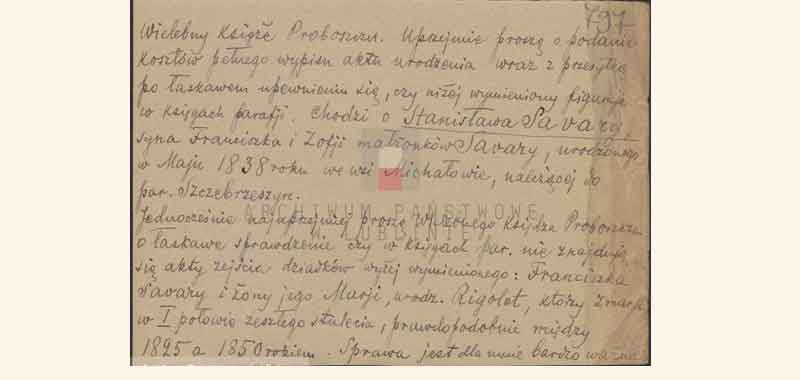 797
Wielebny Księże Proboszczu. Uprzejmie proszę o podanie
kosztów pełnego wypisu aktu urodzenia wraz z przesyłką
po łaskawem upewnieniu się, czy niżej wymieniony figuruje
w księgach parafji. Chodzi o Stanisława Savary,
syna Franciszka i Zofji małżonków Savary, urodzonego
w Maju 1838 roku we wsi Michałowie, należącej do
par. Szczebrzeszyn.
ARCHIWUM PAŃSTWOWE
W LUBLINIE
Jednocześnie najuprzejmiej proszę Wielebnego Księdza Proboszcza
o łaskawe sprawdzenie czy w księgach par. nie znajdują
się akty zejścia dziadków wyżej wymienionego: Franciszka
Savary i żony jego Marji, urodz. Rigolet, którzy zmarli
w I połowie zeszłego stulecia, prawdopodobnie między
1825 a 1850 rokiem. Sprawa jest dla mnie bardzo ważna